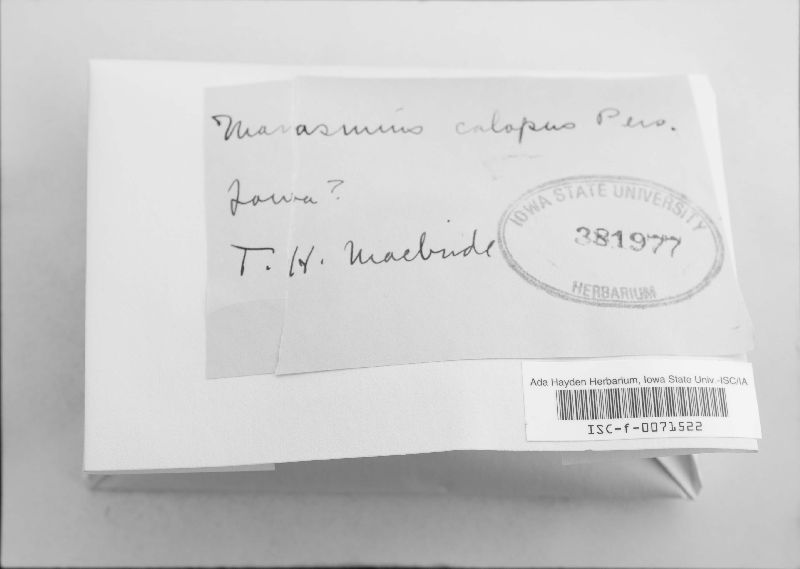 Marasmius calopus Pers.
Iowa?
T. H. Macbride
IOWA STATE UNIVERSITY
381977
HERBARIUM
Ada Hayden Herbarium, Iowa State Univ.-ISC/IA
ISC-f-0071522